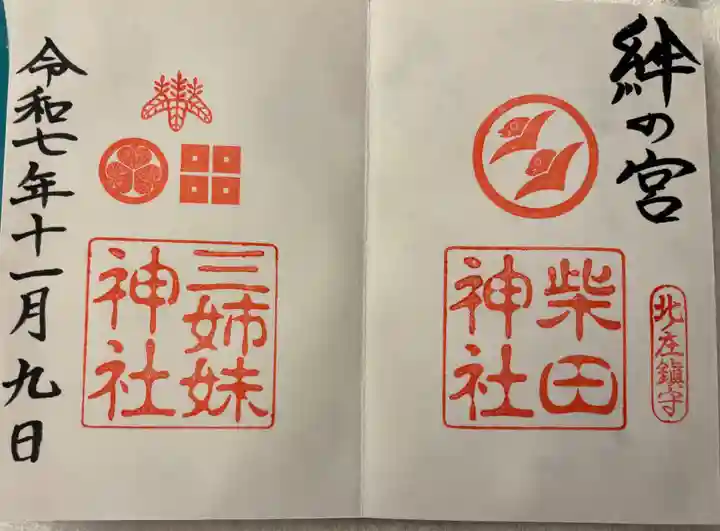 絆の宮
北庄鎮守
柴田
神社
三姉妹
神社
令和七年十一月九日